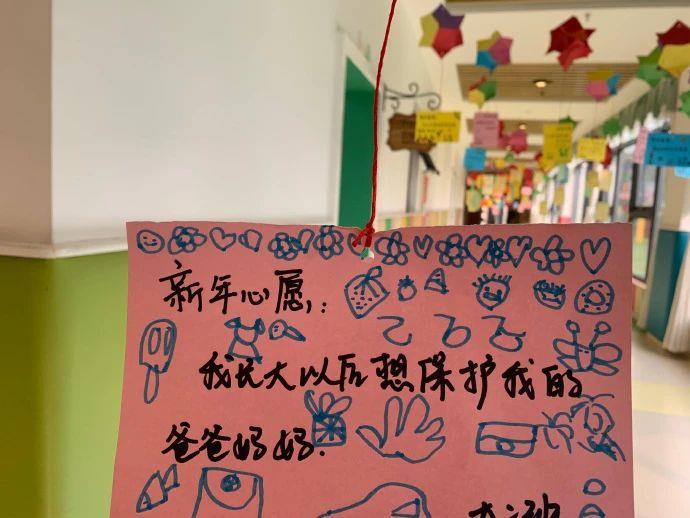 新年心愿:
我长大以后想保护我的
爸爸妈妈.